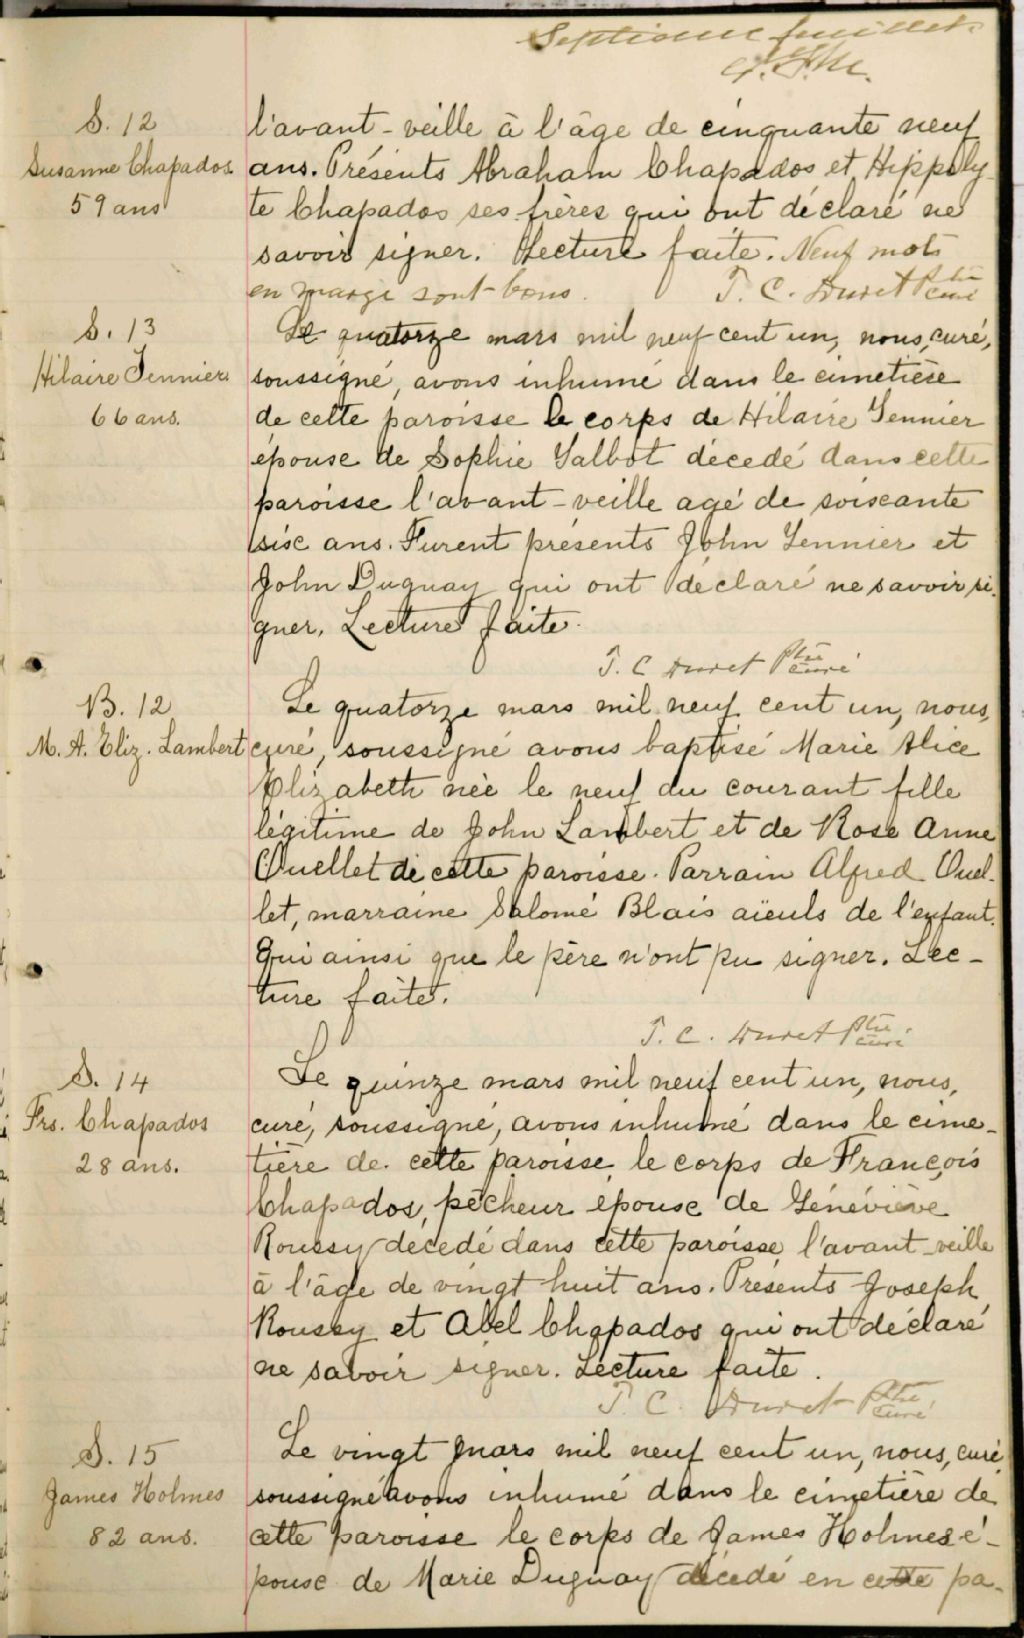 Septième feuillet.
S. 12
Susanne Chapados
59 ans
l'avant-veille à l'âge de cinquante neuf
ans. Présents Abraham Chapados et Hippoly-
te Chapados ses frères qui ont déclaré ne
savoir signer. Lecture faite. Neuf mots
en marge sont bons. T. C. Duret Ptre curé
S. 13
Hilaire Tennier
66 ans.
Le quatorze mars mil neuf cent un, nous, curé,
soussigné, avons inhumé dans le cimetière
de cette paroisse le corps de Hilaire Tennier
épouse de Sophie Talbot décedé dans cette
paroisse l'avant-veille agé de soixante
six ans. Furent présents John Tennier et
John Duguay qui ont déclaré ne savoir si-
gner. Lecture faite.
T. C Duret Ptre curé
B. 12
M. A. Eliz. Lambert
Le quatorze mars mil neuf cent un, nous,
curé, soussigné avons baptisé Marie Alice
Elizabeth née le neuf du courant fille
légitime de John Lambert et de Rose Anne
Ouellet de cette paroisse. Parrain Alfred Ouel-
let, marraine Salomé Blais aïeuls de l'enfant.
Qui ainsi que le père n'ont pu signer. Lec-
ture faite.
T. C. Duret Ptre. curé
S. 14
Frs. Chapados
28 ans.
Le quinze mars mil neuf cent un, nous,
curé, soussigné, avons inhumé dans le cime-
tière de cette paroisse le corps de François
Chapados, pêcheur épouse de Généviève
Roussy decedé dans cette paroisse l'avant-veille
à l'âge de vingt huit ans. Présents Joseph
Roussy et Abel Chapados qui ont déclaré
ne savoir signer. Lecture faite.
T. C. Duret Ptre curé
S. 15
James Holmes
82 ans.
Le vingt mars mil neuf cent un, nous, curé
soussigné avons inhumé dans le cimetière de
cette paroisse le corps de James Holmes é-
pouse de Marie Duguay décédé en cette pa-